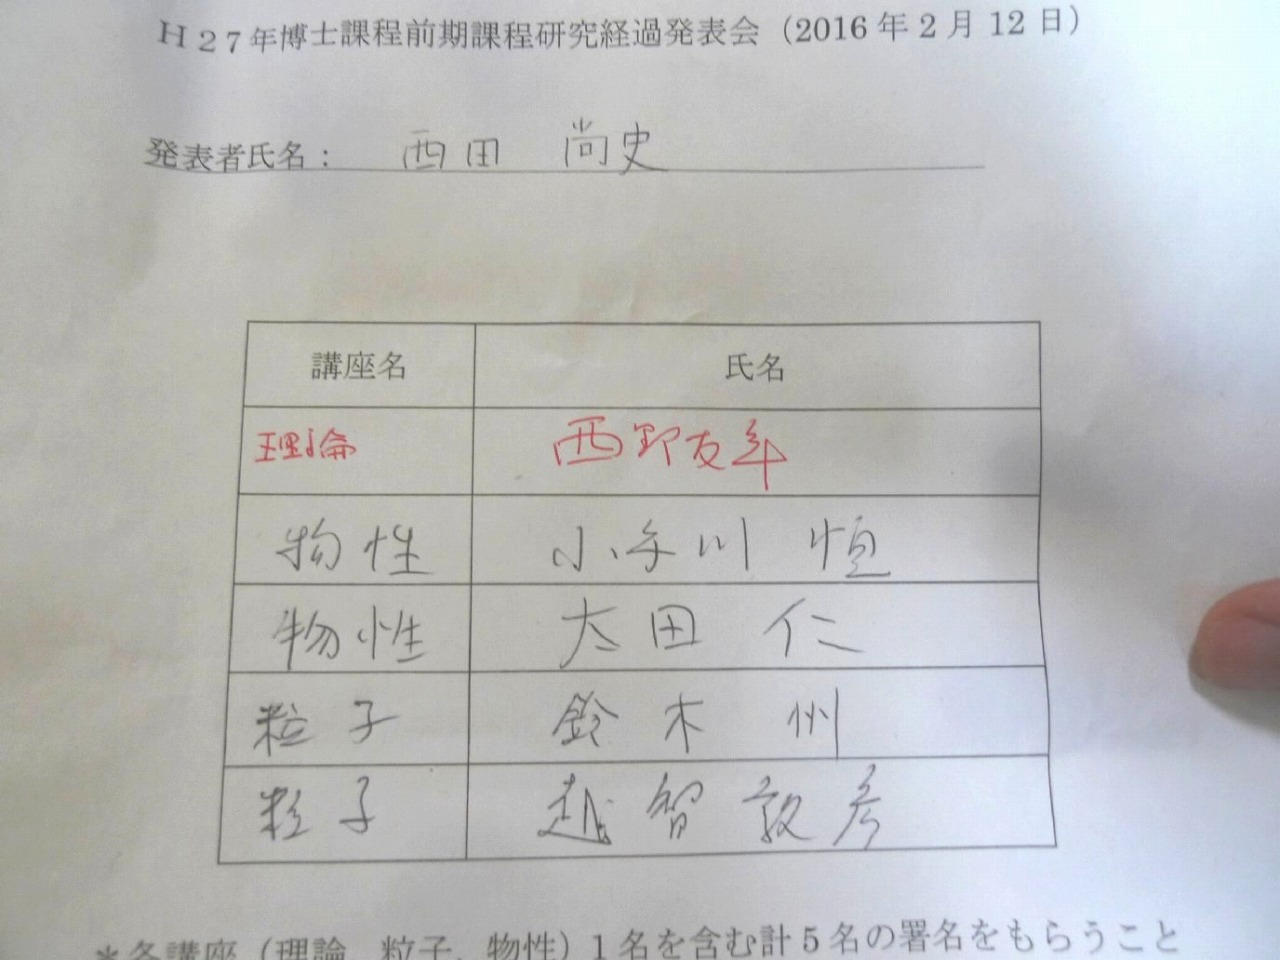 H27年博士課程前期課程研究経過発表会（2016年2月12日）
発表者氏名： 西田 尚史
講座名 氏名
理論 西野友年
物性 小手川 恒
物性 太田 仁
粒子 鈴木 州
粒子 越智 敦彦
＊各講座（理論、粒子、物性）1名を含む計5名の署名をもらうこと